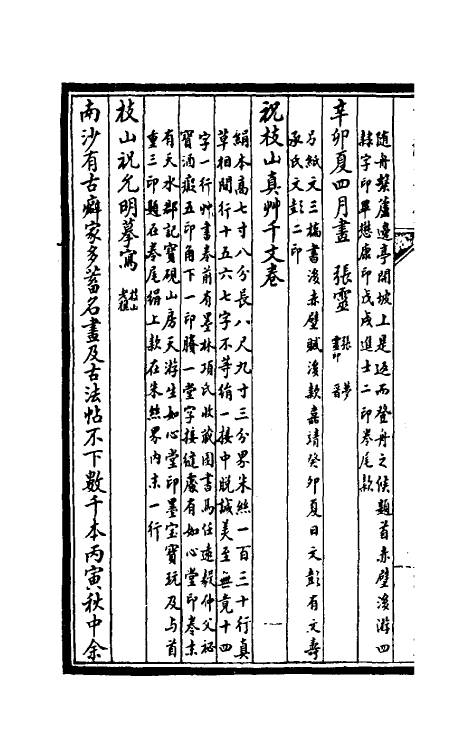 隨舟檠蘆邊亭閒坡上是返而登舟之候題首赤壁後游四
隸字印畢懋康印戊戌進士二印卷尾款
辛卯夏四月畫 張靈 張靈 夢晉
另紙文三橋書後赤壁賦後款嘉靖癸卯夏日文彭有文壽
承氏文彭二印
祝枝山真艸千文卷
絹本高七寸八分長八尺九寸三分界朱絲一百三十行真
草相間行十五六七字不等絹一接中脫誠美至無竟十四
字一行艸書卷前有墨林項氏收藏圖書馬任遠毅仲父祕
寶酒瘕五印角下一印賸一堂字接縫處有如心堂印卷末
有天水郡記寶硯山房天游生如心堂印墨寶寶玩及与首
重三印題在卷尾絹上款在朱絲界內末一行
枝山祝允明摹寫 枝山 老樵
南沙有古癖家多蓄名畫及古法帖不下數千本丙寅秋中余